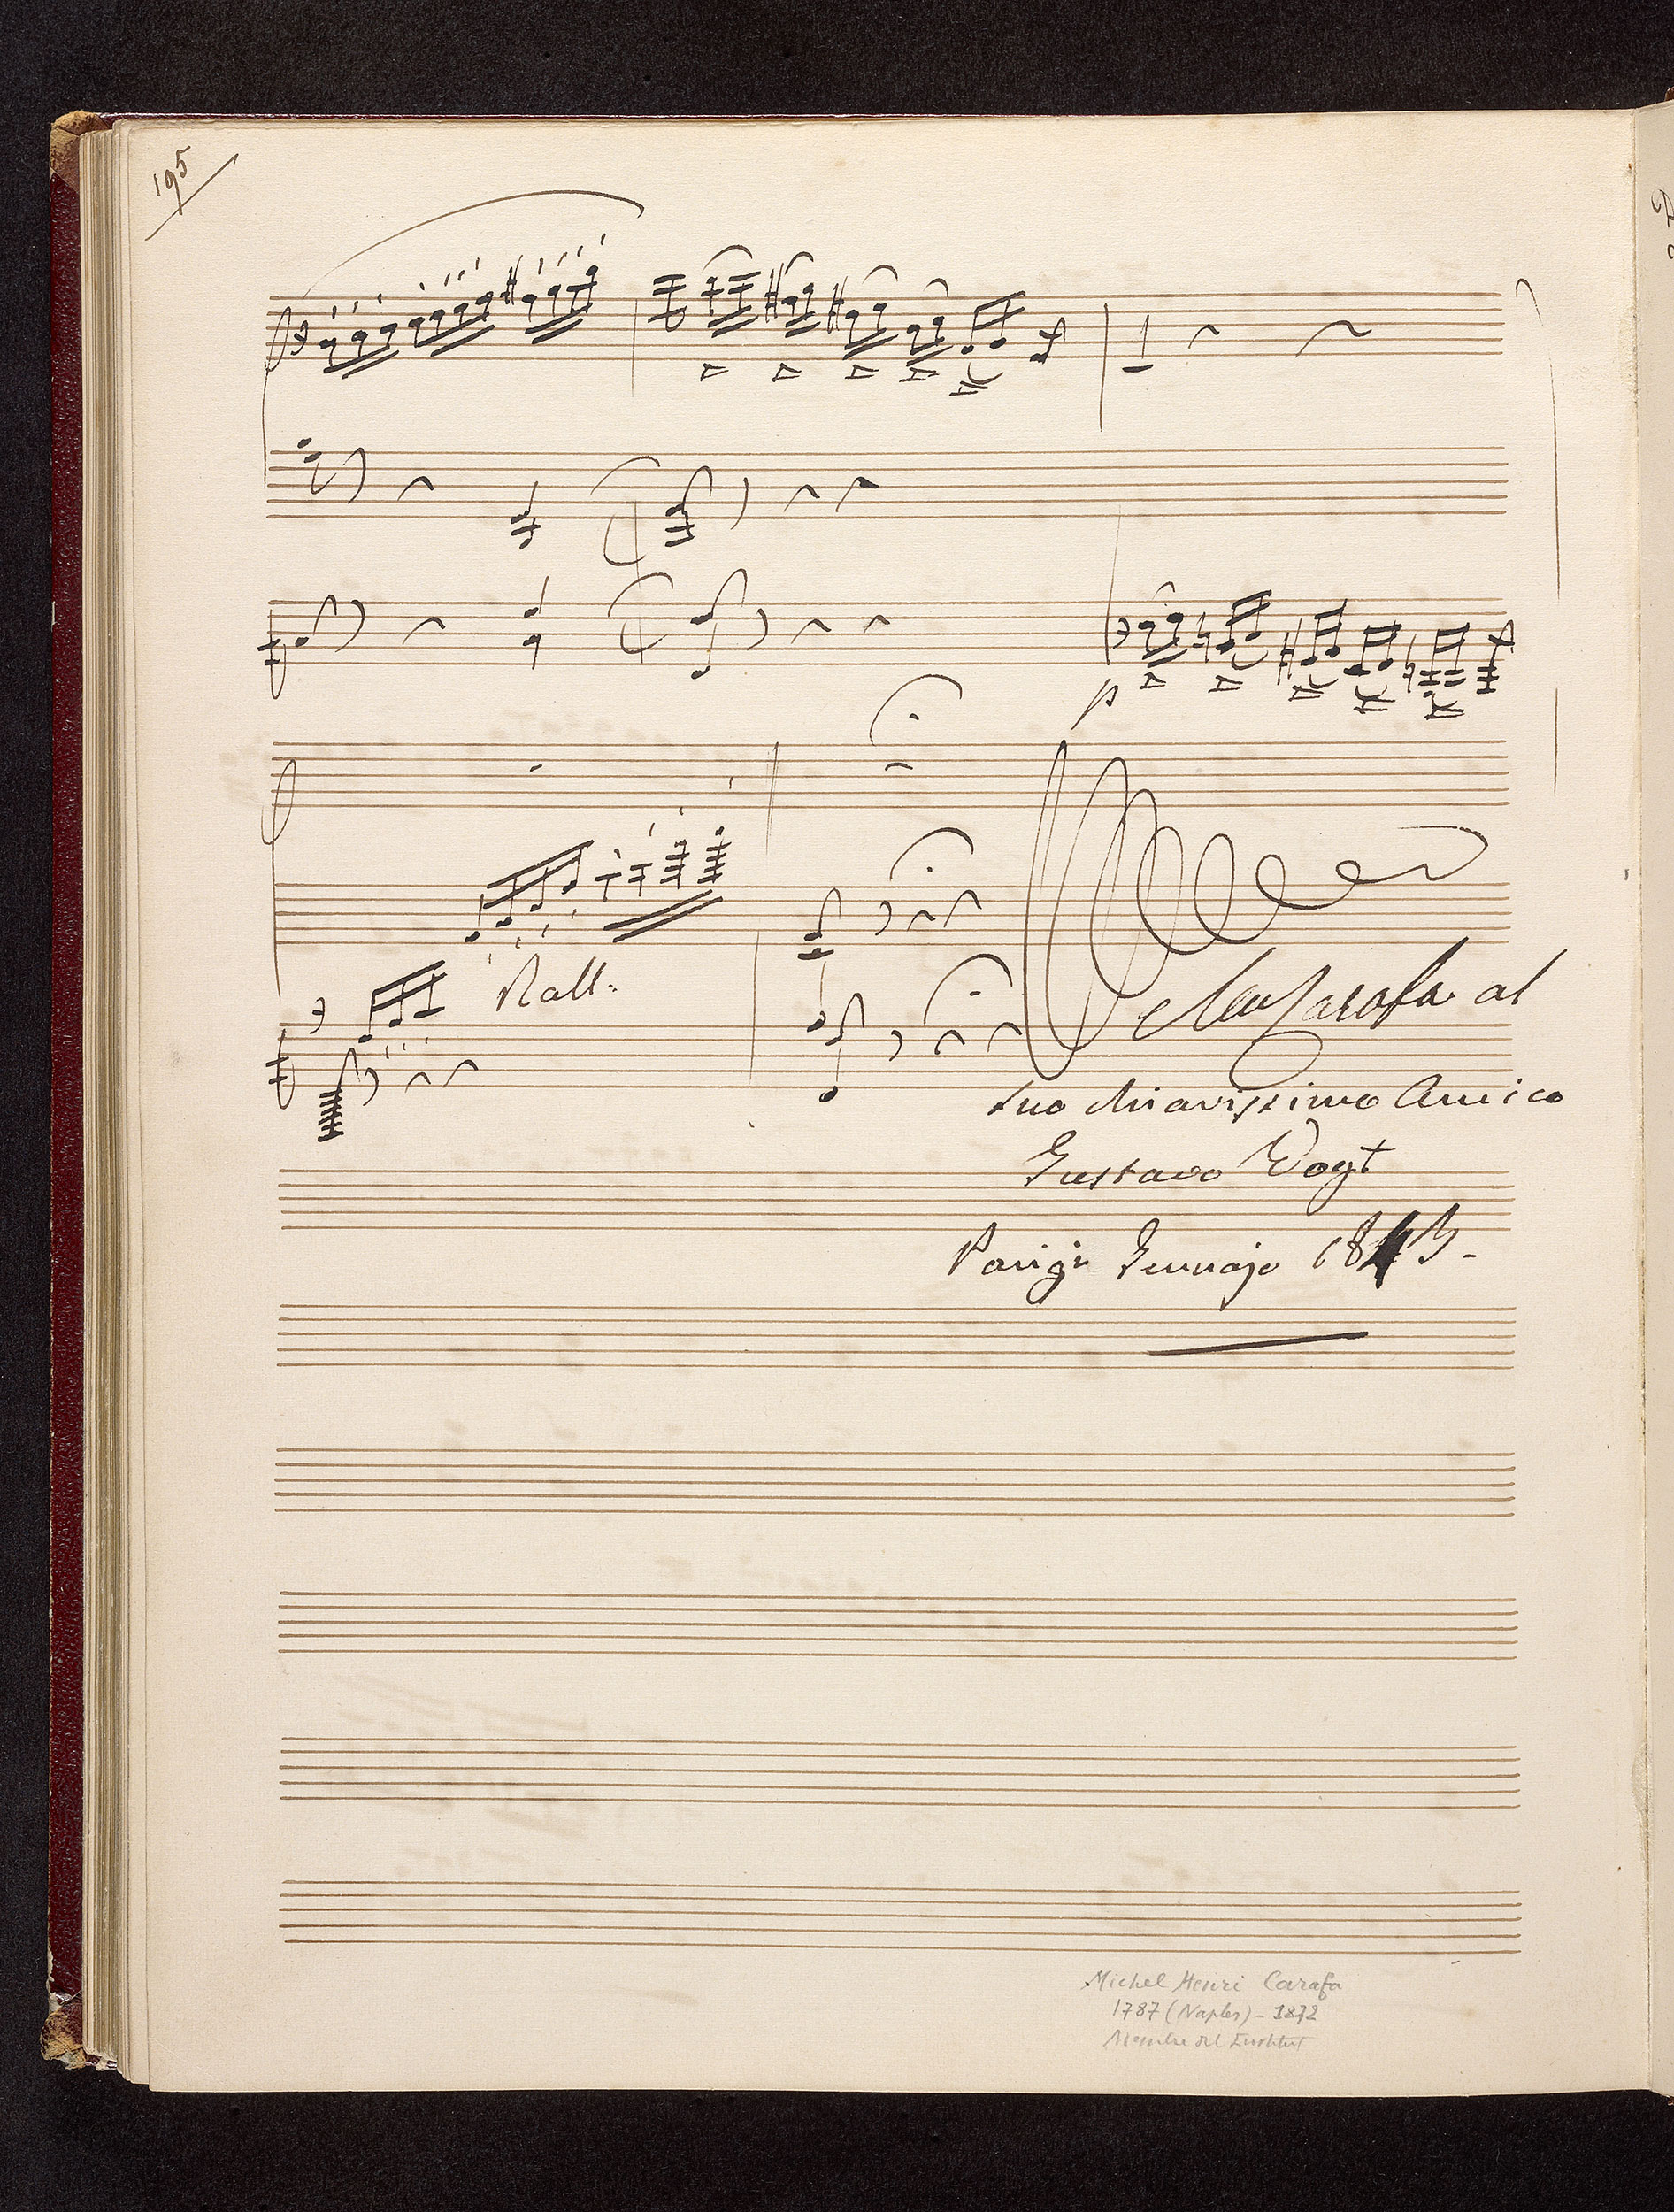 195
p
Rall:
Carafa al
suo chiarissimo Amico
Gustavo Vogt
Parigi Gennajo 1843-
Michel Henri Carafa
1787 (Naples) - 1872
Membre de l'Institut